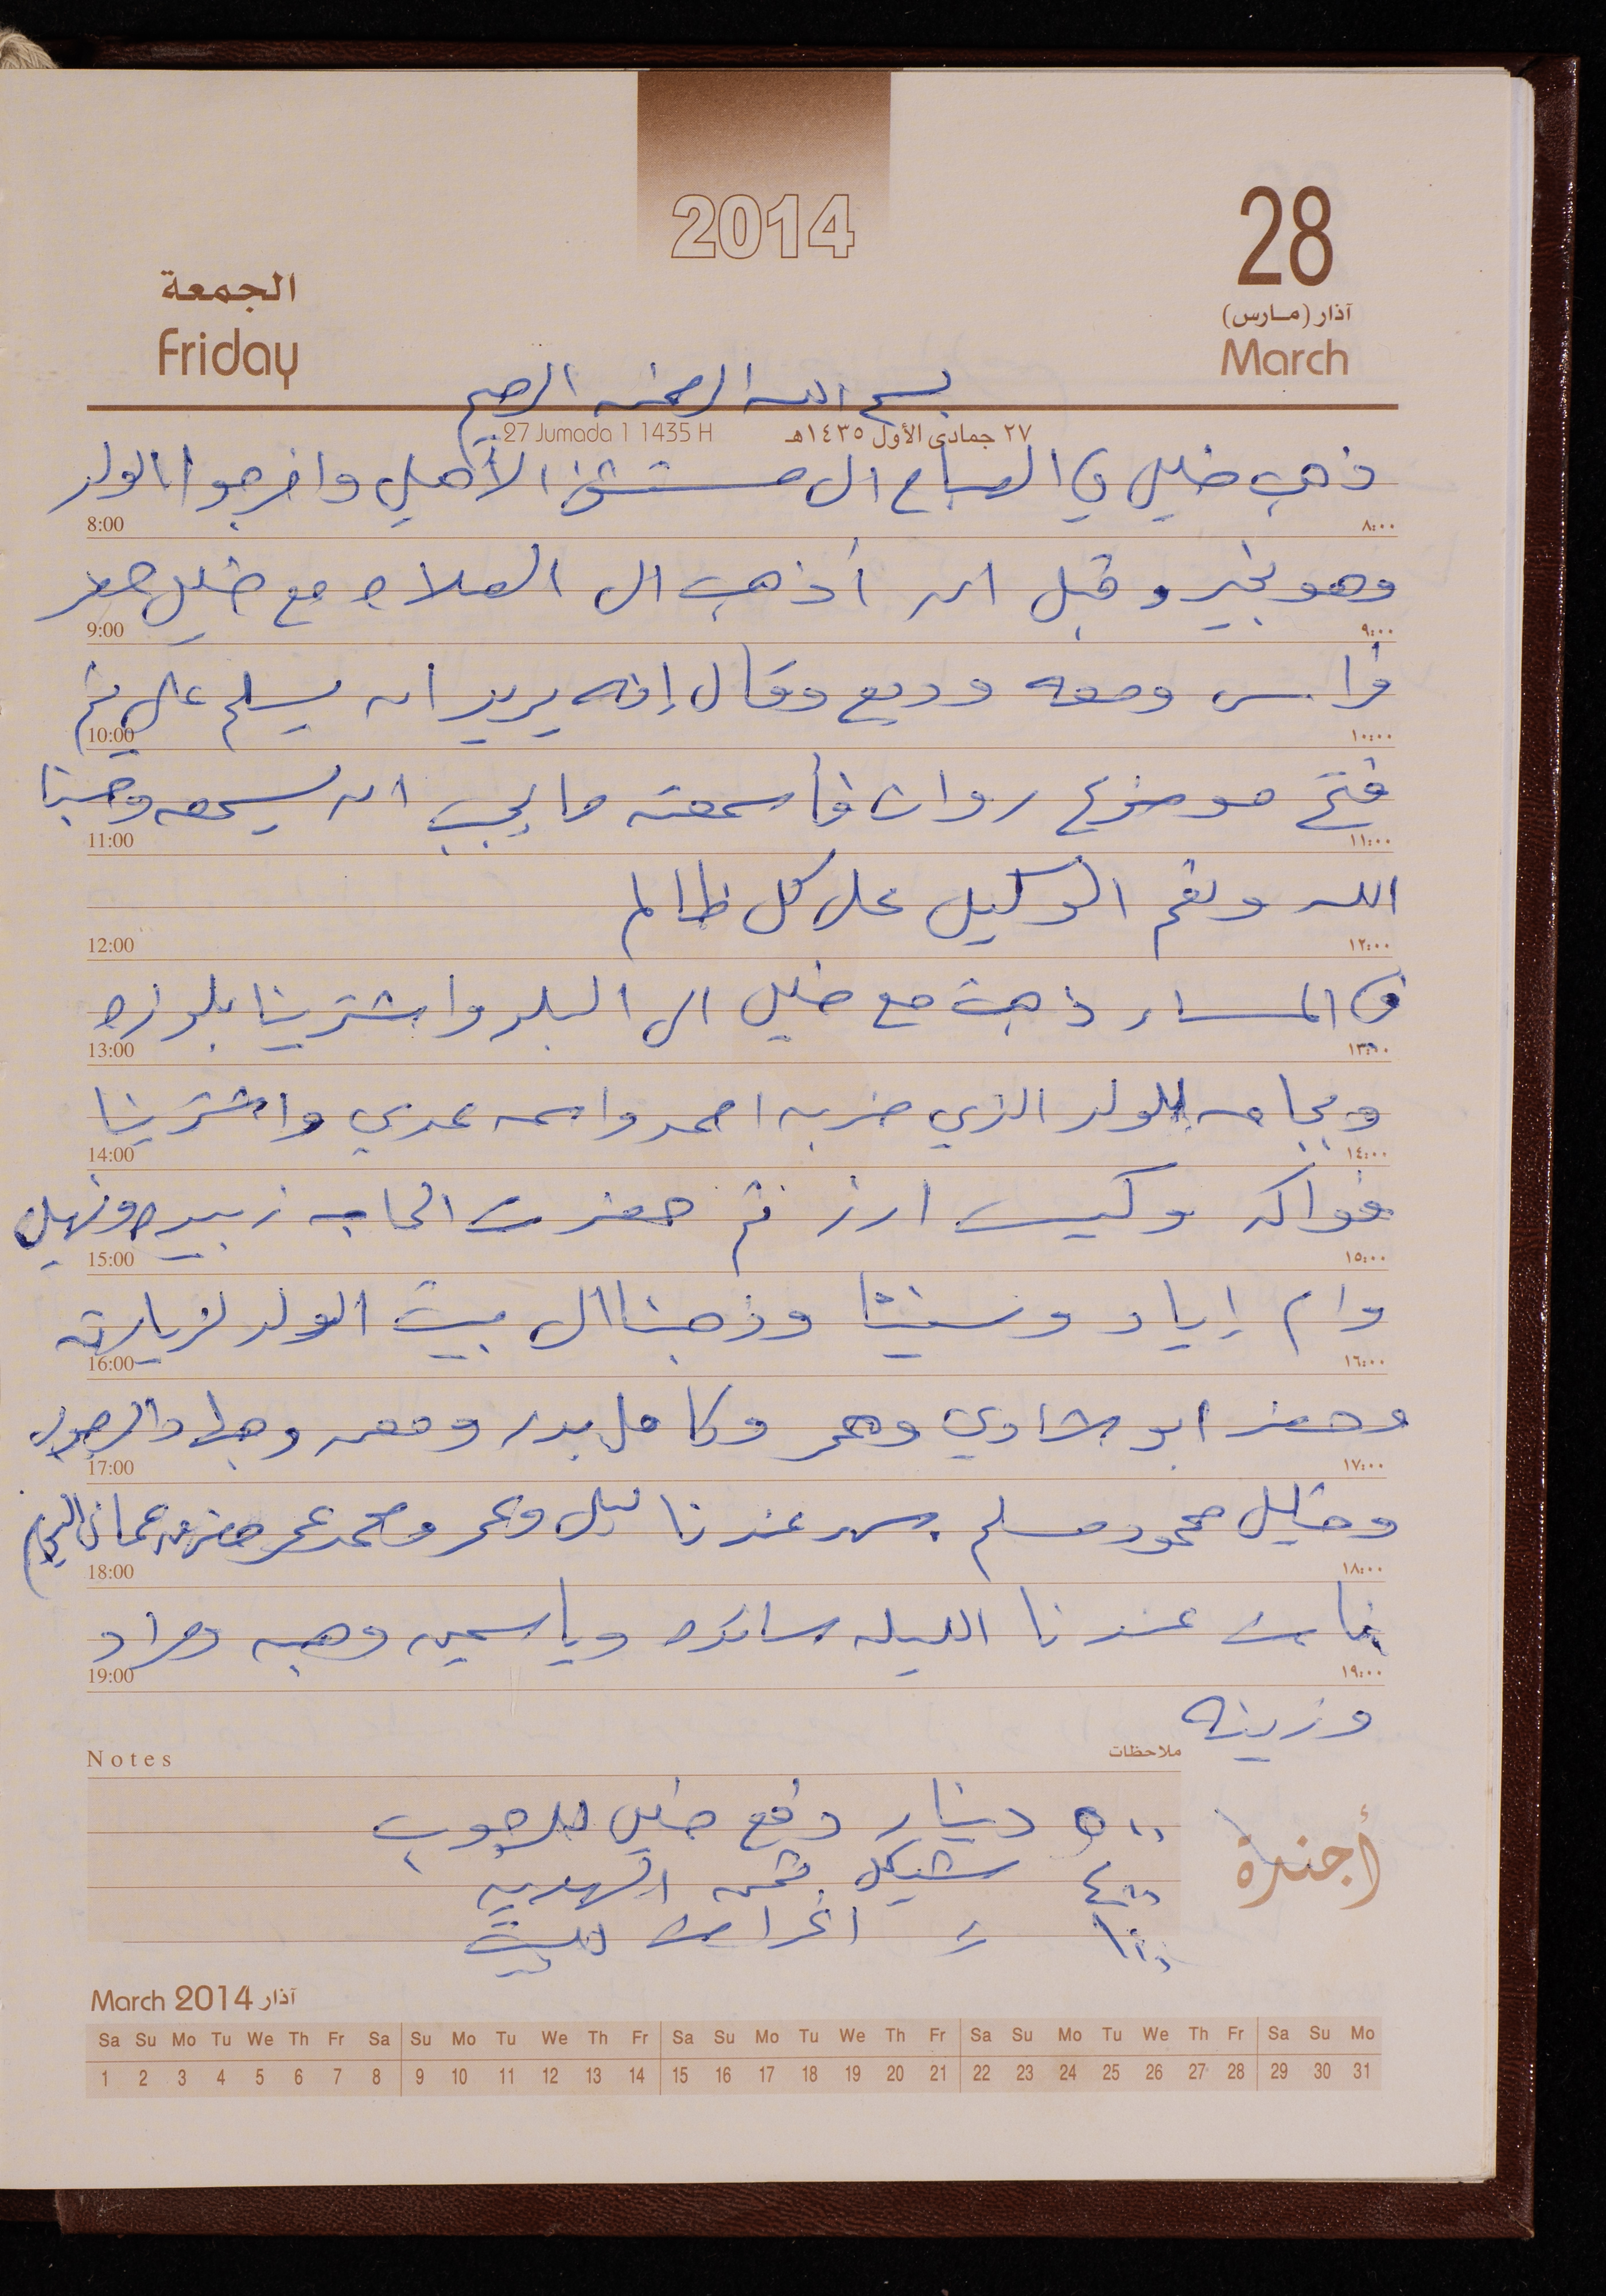 2014
28
آذار (مارس)
March
الجمعة
Friday
بسم الله الرحمن الرحيم
٢٧ جمادى الأول ١٤٣٥هـ
27 Jumada 1 1435 H
ذهب خليل في الصباح الى مستشفى الأهلي واخرجوا الولد
8:00 ٨:٠٠
وهو بخير وقبل ان أذهب الى الصلاه مع خليل حضر
9:00 ٩:٠٠
فراس ومعه وديع وقال إنه يريد ان يسلم علي ثم
10:00 ١٠:٠٠
فتح موضوع روان فأسمعته ما يجب ان يسمعه وحسبنا
11:00 ١١:٠٠
الله ونعم الوكيل على كل ظالم
12:00 ١٢:٠٠
في المساء ذهبت مع خليل الى البلد واشترينا بلوزه
13:00 ١٣:٠٠
وبجامه للولد الذي ضربه احمد واسمه عدي واشترينا
14:00 ١٤:٠٠
فواكه وكيس ارز ثم حضرت الحاجه زبيده ونهيل
15:00 ١٥:٠٠
وام إياد وذهبنا الى بيت الولد لزيارته
16:00 ١٦:٠٠
وحضر ابو وكامل بدر ومعه
17:00 ١٧:٠٠
وخليل محمود مسلم سهر عندنا نبيل وعمر ومحمد عمر حضر من عمان اليوم
18:00 ١٨:٠٠
بات عندنا الليله سائده وياسمين وهبه ومراد
19:00 ١٩:٠٠
وزينه
Notes ملاحظات
٥٠٠ دينار دفع خليل
٤٠٠ شيكل ثمن الهديه
١٠٠ = اغراض للبيت
أجندة
March 2014 آذار
Sa Su Mo Tu We Th Fr Sa Su Mo Tu We Th Fr Sa Su Mo Tu We Th Fr Sa Su Mo Tu We Th Fr Sa Su Mo
1 2 3 4 5 6 7 8 9 10 11 12 13 14 15 16 17 18 19 20 21 22 23 24 25 26 27 28 29 30 31